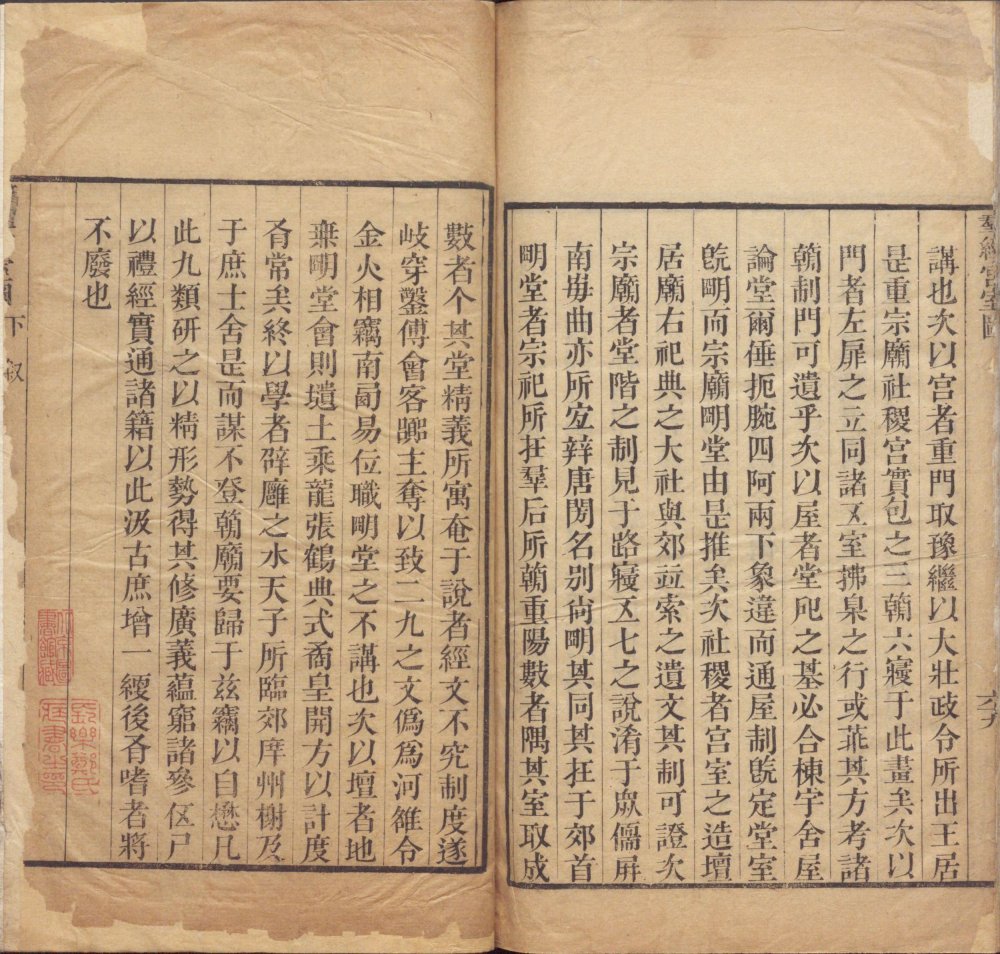 羣經宫室圖
六十九
講也次以宫者重門取豫繼以大壯政令所出王居
是重宗廟社稷宫實包之三朝六寢于此畫矣次以
門者左扉之立同諸五室拂臬之行或乖其方考諸
朝制門可遺乎次以屋者堂戺之基必合棟宇舍屋
論堂爾倕扼腕四阿兩下象違而通屋制旣定堂室
旣明而宗廟明堂由是推矣次社稷者宮室之造壇
居廟右祀典之大社與郊竝索之遺文其制可證次
宗廟者堂階之制見于路寢五七之說淆于眾儒屏
南毋曲亦所宜辨唐閍名別尙明其同其在于郊首
明堂者宗祀所在羣后所朝重陽數者隅其室取成
數者个其堂精義所寓奄于說者經文不究制度遂
岐穿鑿傅會客踞主奪以致二九之文僞爲河雒令
金火相竊南北易位職明堂之不講也次以壇者地
乘明堂會則壝土乘龍張鶴典式矞皇開方以計度
有常矣終以學者辟廱之水天子所臨郊庠州榭及
于庶士舍是而謀不登朝廟要歸于兹竊以自懋凡
此九類研之以精形勢得其修廣義蘊窮諸參伍戸
以禮經實通諸籍以此汲古庶增一綆後有嗜者將
不廢也
下 叙